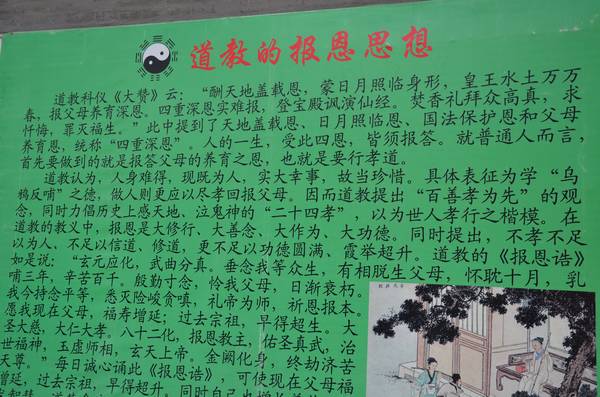 道教的报恩思想
道教科仪《大赞》云：“酬天地盖载恩，蒙日月照临身形，皇王水土万万
春，报父母养育深恩。四重深恩实难报，登宝殿讽演仙经。焚香礼拜众高真，求
忏悔，罪灭福生。”此中提到了天地盖载恩、日月照临恩、国法保护恩和父母
养育恩，统称“四重深恩”。人的一生，受此四恩，皆须报答。就普通人而言，
首先要做到的就是报答父母的养育之恩，也就是要行孝道。
道教认为，人身难得，现既为人，实大幸事，故当珍惜。具体表征为学“乌
鸦反哺”之德，做人则更应以尽孝回报父母。因而道教提出“百善孝为先”的观
念，同时力倡历史上感天地、泣鬼神的“二十四孝”，以为世人孝行之楷模。在
道教的教义中，报恩是大修行、大善念、大作为、大功德。同时提出，不孝不足
以为人、不足以信道、修道，更不足以功德圆满、霞举超升。道教的《报恩诰》
如是说：“玄元应化，武曲分真。垂念我等众生，有相脱生父母，怀耽十月，乳
哺三年，辛苦百千。殷勤寸念，怜我父母，日渐衰朽。
我今持念平等，悉灭险崚贪嗔，礼帝为师，祈恩报本。
愿我现在父母，福寿增延；过去宗祖，早得超生。大
圣大慈，大仁大孝，八十二化，报恩教主，佑圣真武，治
世福神，玉虚师相，玄天上帝。金阙化身，终劫济苦
天尊。”每日诚心诵此《报恩诰》，可使现在父母福
增延，过去宗祖，早得超升。同时自己也